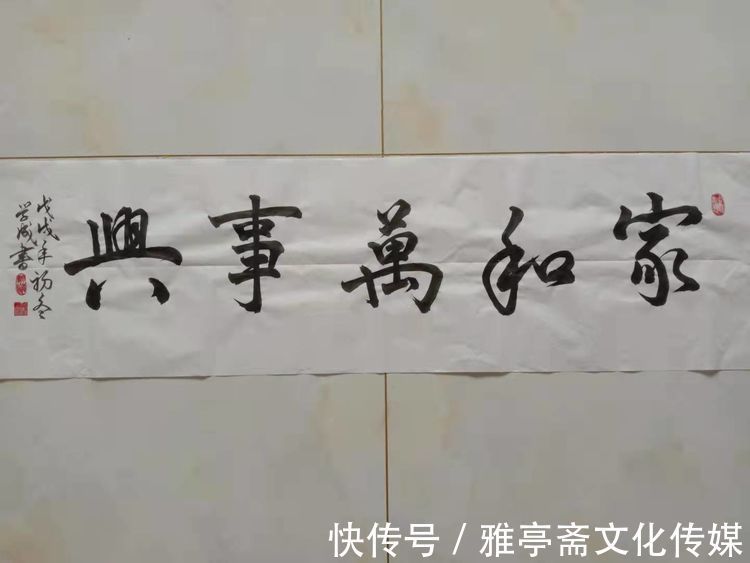 家和萬事興
戊戌年初冬
學成書
快传号 / 雅亭斋文化传媒